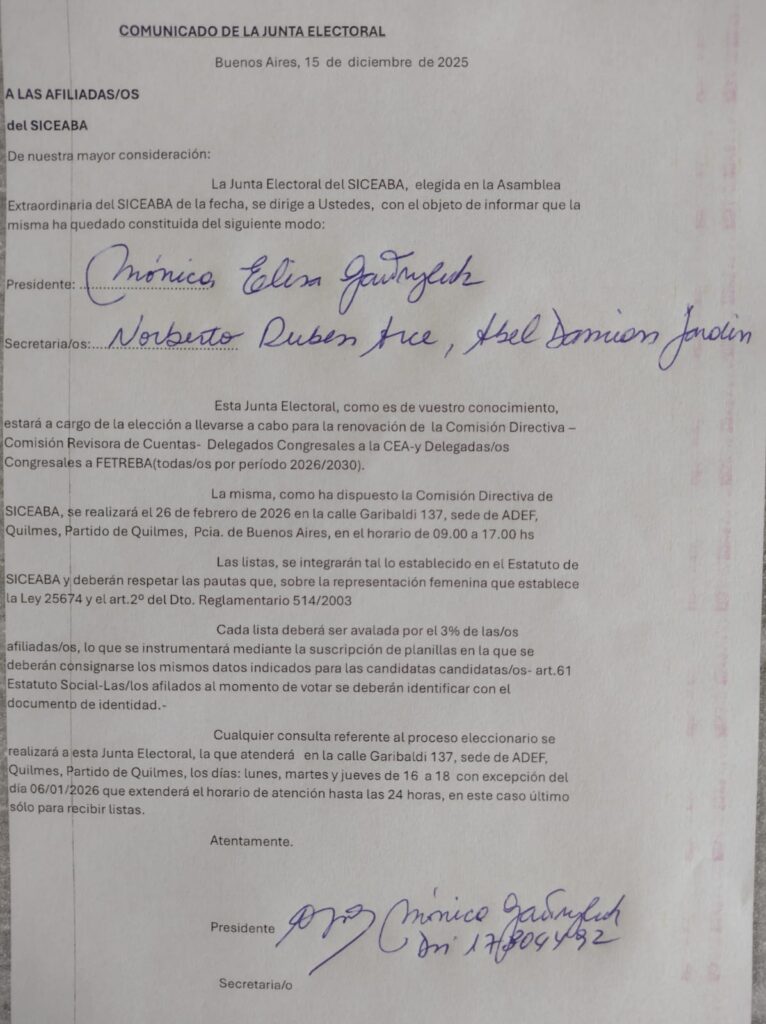 COMUNICADO DE LA JUNTA ELECTORAL
Buenos Aires, 15 de diciembre de 2025
A LAS AFILIADAS/OS
del SICEABA
De nuestra mayor consideración:
La Junta Electoral del SICEABA, elegida en la Asamblea
Extraordinaria del SICEABA de la fecha, se dirige a Ustedes, con el objeto de informar que la
misma ha quedado constituida del siguiente modo:
Presidente: Mónica Elisa
Secretaria/os: Norberto Ruben Arce, Abel Damian Jardin
Esta Junta Electoral, como es de vuestro conocimiento,
estará a cargo de la elección a llevarse a cabo para la renovación de la Comisión Directiva –
Comisión Revisora de Cuentas- Delegados Congresales a la CEA-y Delegadas/os
Congresales a FETREBA(todas/os por período 2026/2030).
La misma, como ha dispuesto la Comisión Directiva de
SICEABA, se realizará el 26 de febrero de 2026 en la calle Garibaldi 137, sede de ADEF,
Quilmes, Partido de Quilmes, Pcia. de Buenos Aires, en el horario de 09.00 a 17.00 hs
Las listas, se integrarán tal lo establecido en el Estatuto de
SICEABA y deberán respetar las pautas que, sobre la representación femenina que establece
la Ley 25674 y el art.2º del Dto. Reglamentario 514/2003
Cada lista deberá ser avalada por el 3% de las/os
afiliadas/os, lo que se instrumentará mediante la suscripción de planillas en la que se
deberán consignarse los mismos datos indicados para las candidatas candidatas/os- art.61
Estatuto Social-Las/los afilados al momento de votar se deberán identificar con el
documento de identidad.-
Cualquier consulta referente al proceso eleccionario se
realizará a esta Junta Electoral, la que atenderá en la calle Garibaldi 137, sede de ADEF,
Quilmes, Partido de Quilmes, los días: lunes, martes y jueves de 16 a 18 con excepción del
día 06/01/2026 que extenderá el horario de atención hasta las 24 horas, en este caso último
sólo para recibir listas.
Atentamente.
Presidente Mónica
Dni
Secretaria/o